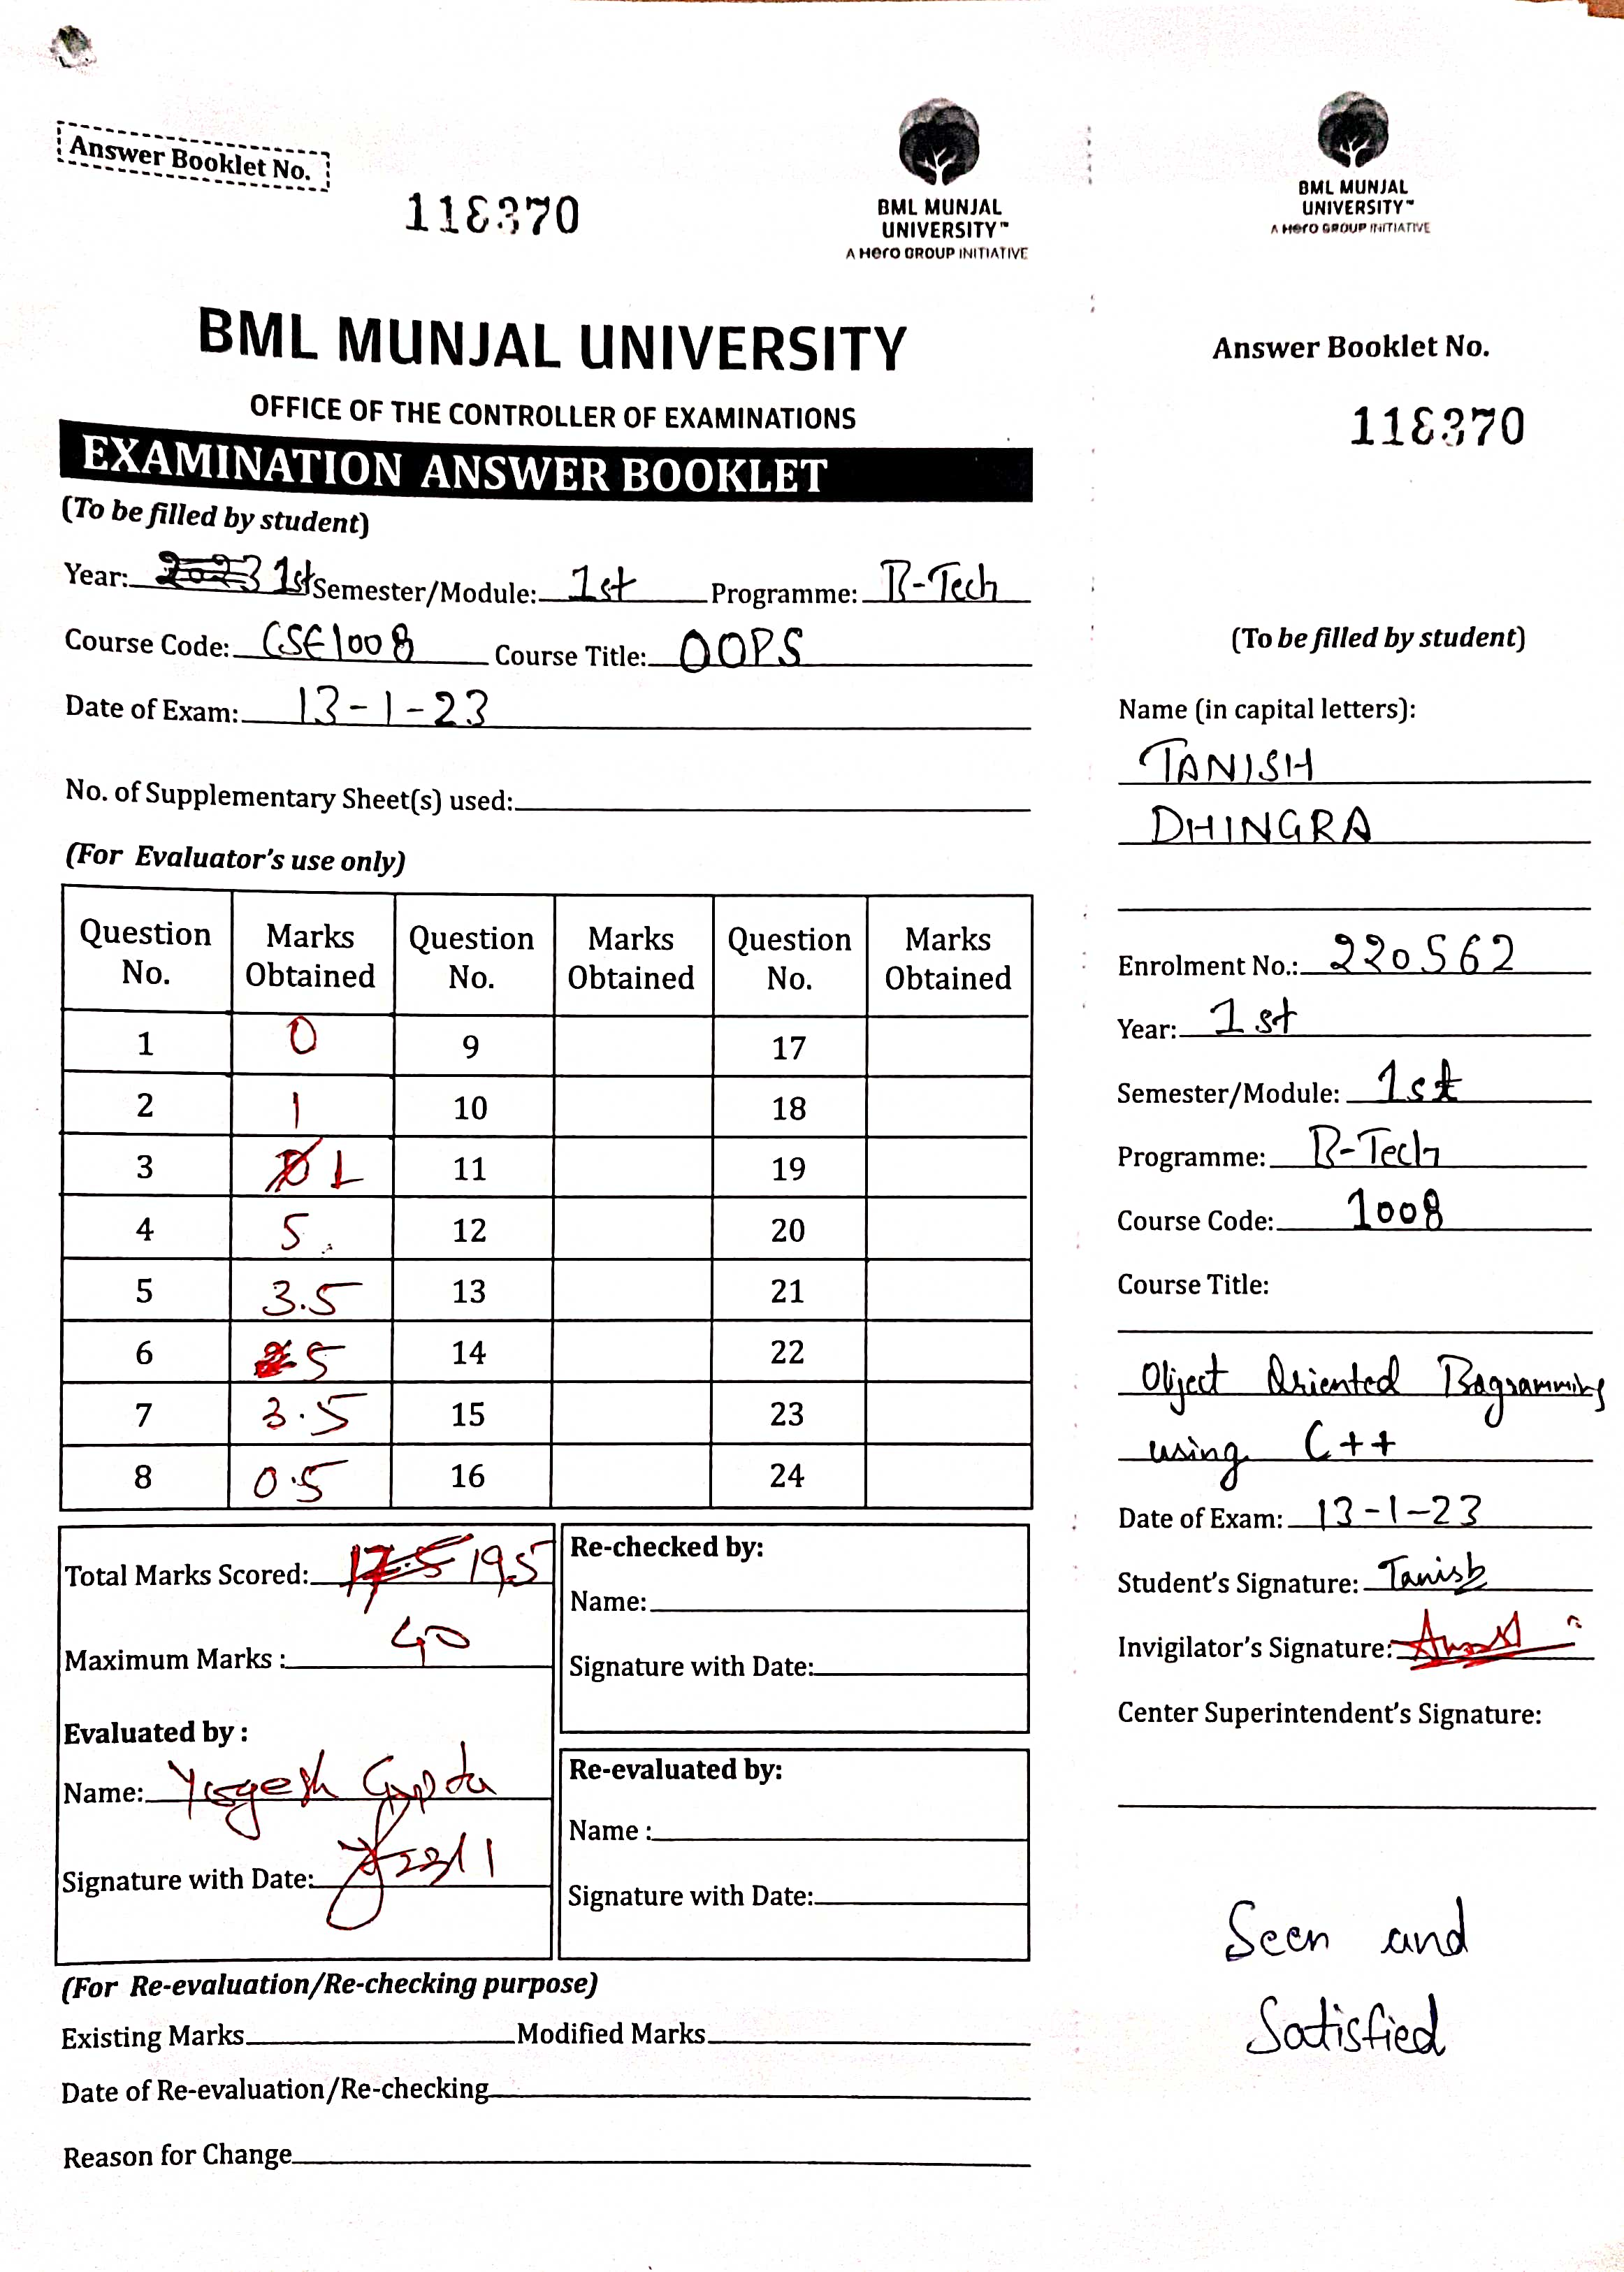 Answer Booklet No.
118370
BML MUNJAL
UNIVERSITY™
A Hero GROUP INITIATIVE
BML MUNJAL UNIVERSITY
OFFICE OF THE CONTROLLER OF EXAMINATIONS
EXAMINATION ANSWER BOOKLET
(To be filled by student)
Year: 2023 1st Semester/Module: 1st Programme: B-Tech
Course Code: CSE1008 Course Title: OOPS
Date of Exam: 13-1-23
No. of Supplementary Sheet(s) used:
(For Evaluator's use only)
Question No. Marks Obtained Question No. Marks Obtained Question No. Marks Obtained
1 0 9 17
2 1 10 18
3 0 1 11 19
4 5 12 20
5 3.5 13 21
6 5 14 22
7 3.5 15 23
8 0.5 16 24
Total Marks Scored: 17.5 19.5
Maximum Marks : 40
Evaluated by :
Name: Yogesh Gupta
Signature with Date: 23/1
Re-checked by:
Name:
Signature with Date:
Re-evaluated by:
Name :
Signature with Date:
(For Re-evaluation/Re-checking purpose)
Existing Marks Modified Marks
Date of Re-evaluation/Re-checking
Reason for Change
BML MUNJAL
UNIVERSITY™
A Hero GROUP INITIATIVE
Answer Booklet No.
118370
(To be filled by student)
Name (in capital letters):
TANISH
DHINGRA
Enrolment No.: 220562
Year: 1st
Semester/Module: 1st
Programme: B-Tech
Course Code: 1008
Course Title:
Object Oriented Programming
using C++
Date of Exam: 13-1-23
Student's Signature: Tanish
Invigilator's Signature:
Center Superintendent's Signature:
Seen and
Satisfied